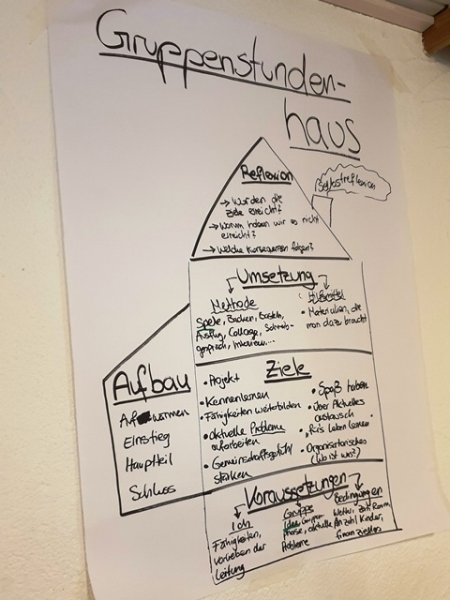 Gruppenstunden-
haus
Selbstreflexion
Reflexion
→ Wurden die
Ziele erreicht?
→ Warum haben wir es nicht
erreicht?
→ Welche Konsequenzen folgen?
Umsetzung
Methode
Spiele, Backen, Basteln,
Ausflug, Collage, Schreib-
gespräch, Interview,...
• Hilfsmittel
• Materialien, die
man dazu braucht
Aufbau
Aufwärmen
Einstieg
Hauptteil
Schluss
Ziele
• Projekt
• Kennenlernen
• Fähigkeiten weiterbilden
• aktuelle Probleme
aufarbeiten
• Gemeinschaftsgefühl
stärken
• Spaß haben
• über Aktuelles
austausch
• "Fürs Leben lernen"
• Organisatorisches
(Wo ist was?)
Voraussetzungen
Ich
Fähigkeiten,
vorlieben der
Leitung
Gruppe
phase, aktuelle
Probleme
Bedingungen
Wetter, Zeit, Raum,
Anzahl Kinder,
finanzielles